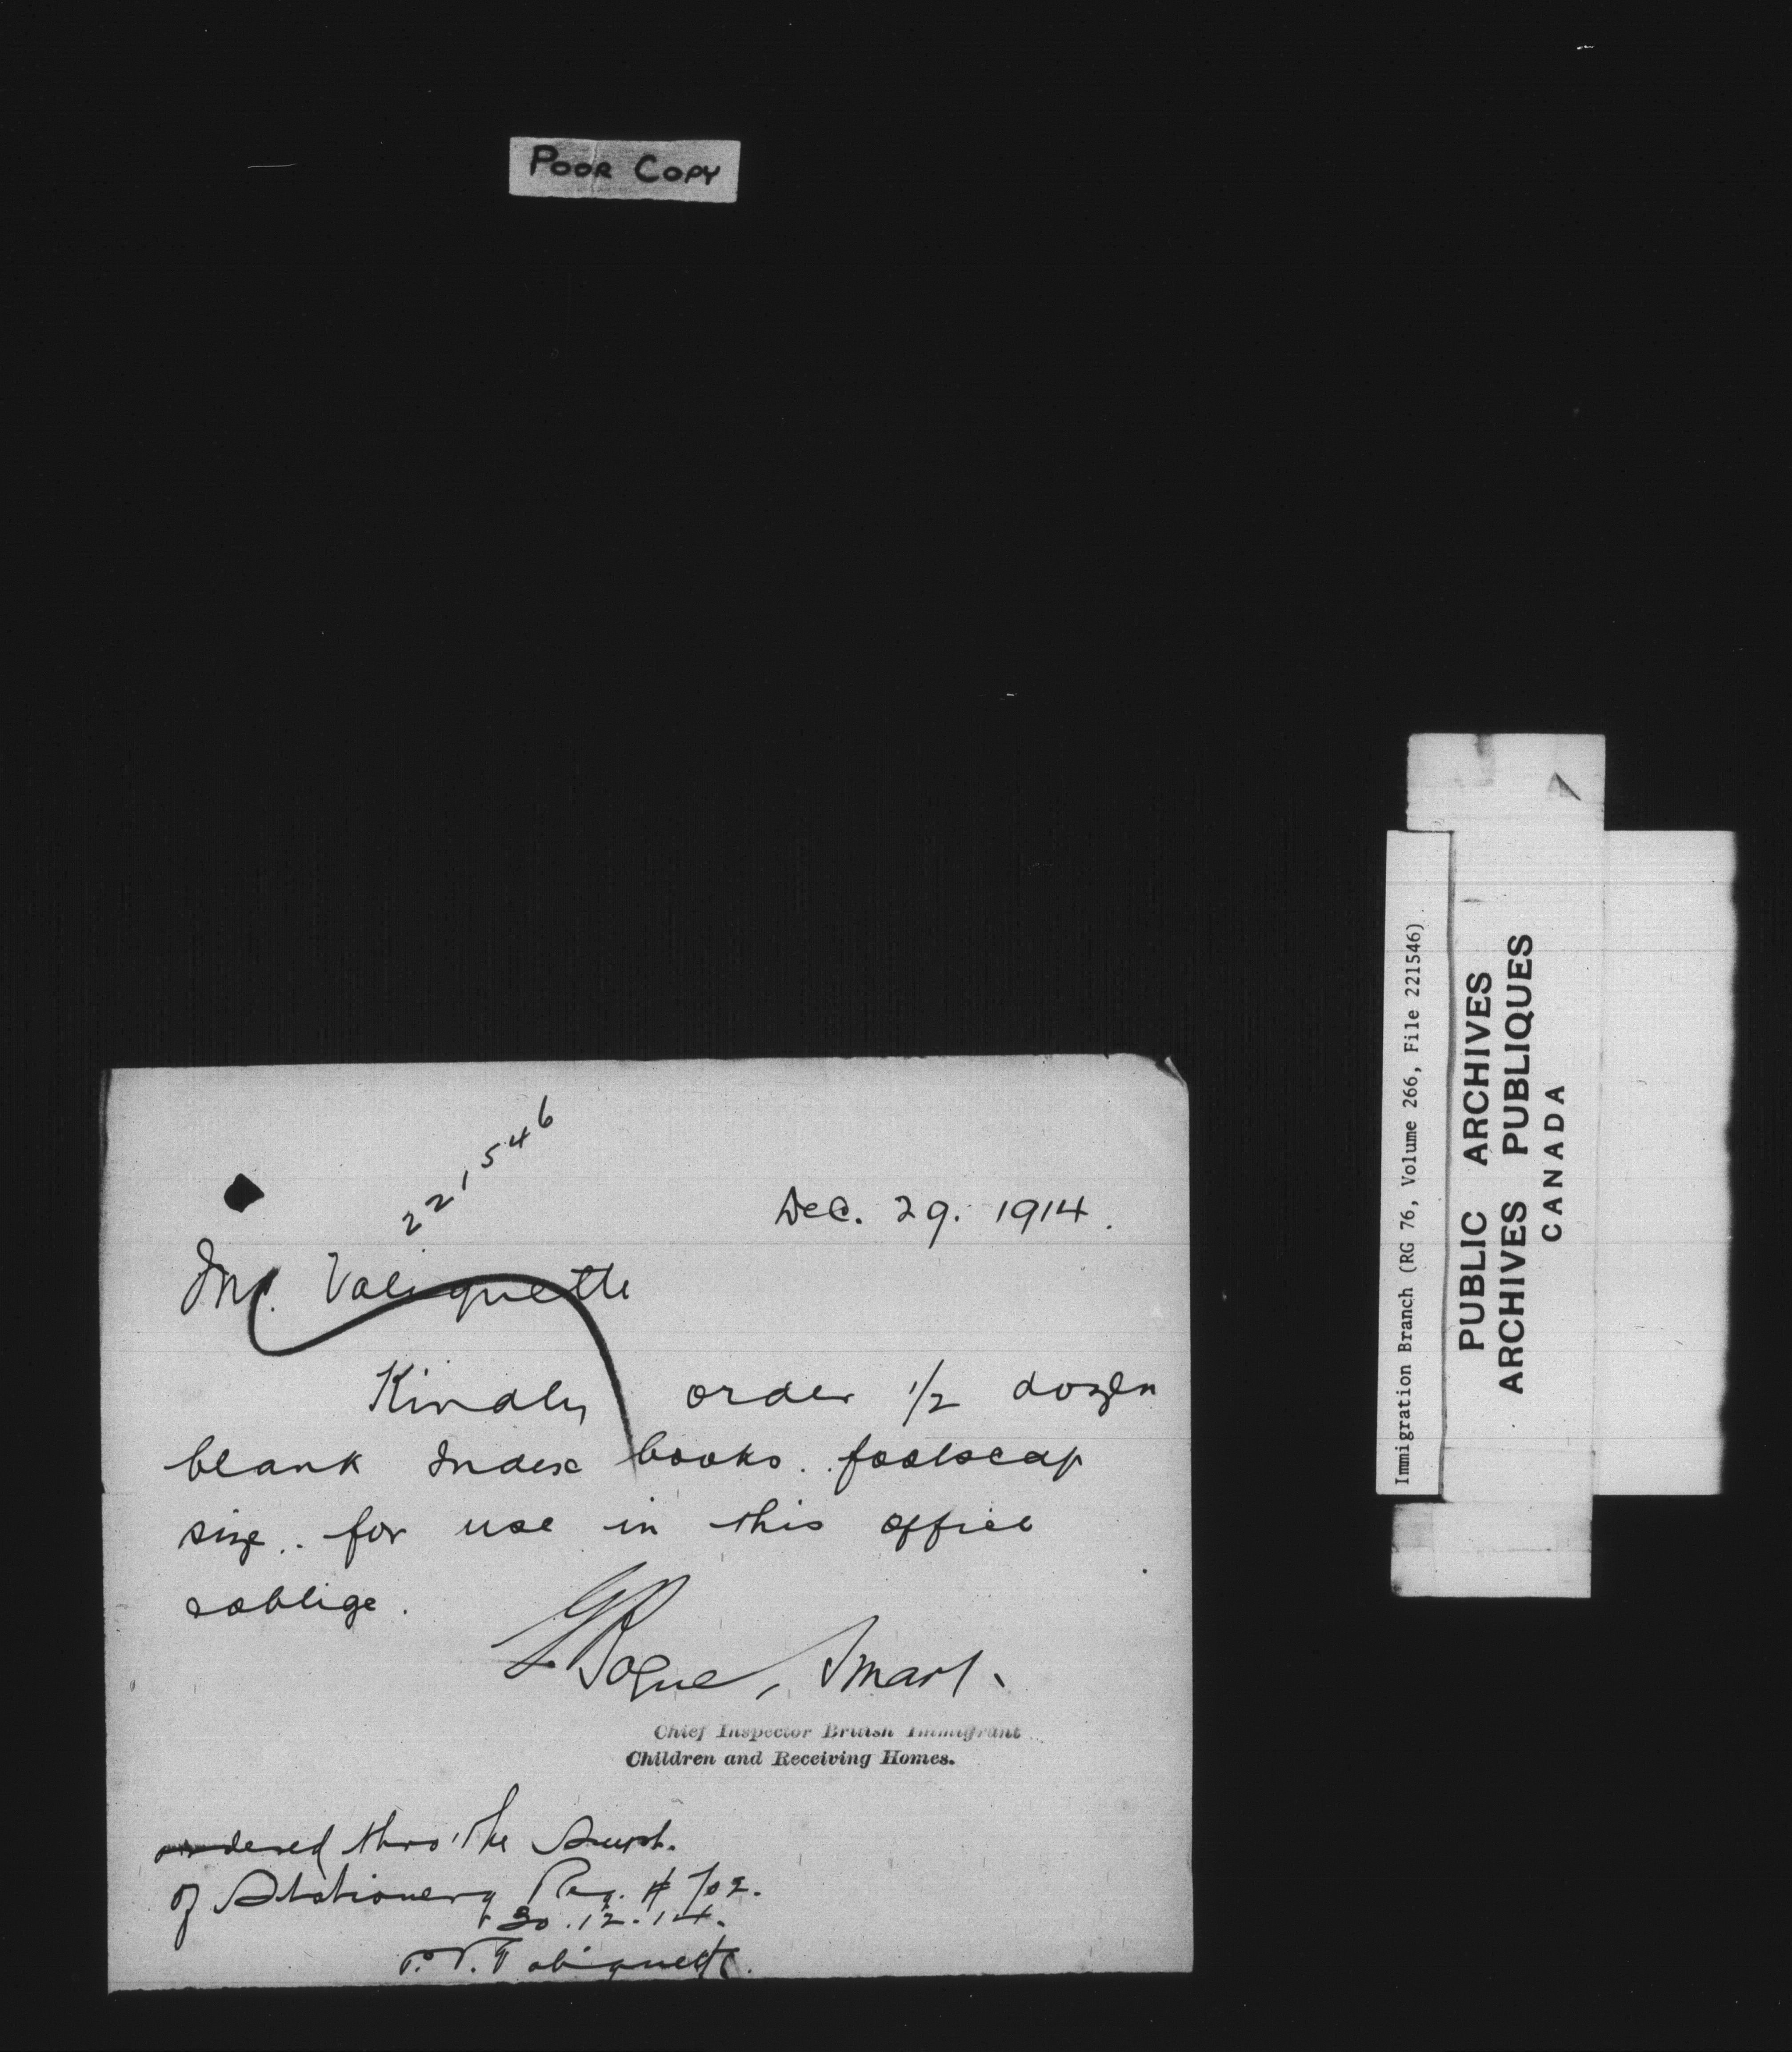 POOR COPY
221546
Dec. 29. 1914.
Mr. Valiquette
Kindly order 1/2 dozen
blank Index books. foolscap
size.. for use in this office
& oblige.
G Bogue, Smart.
Chief Inspector British Immigrant
Children and Receiving Homes.
ordered thro' the Supt.
of Stationery Req. # 702.
30.12.14.
Immigration Branch (RG 76, Volume 266, File 221546)
PUBLIC ARCHIVES
ARCHIVES PUBLIQUES
CANADA